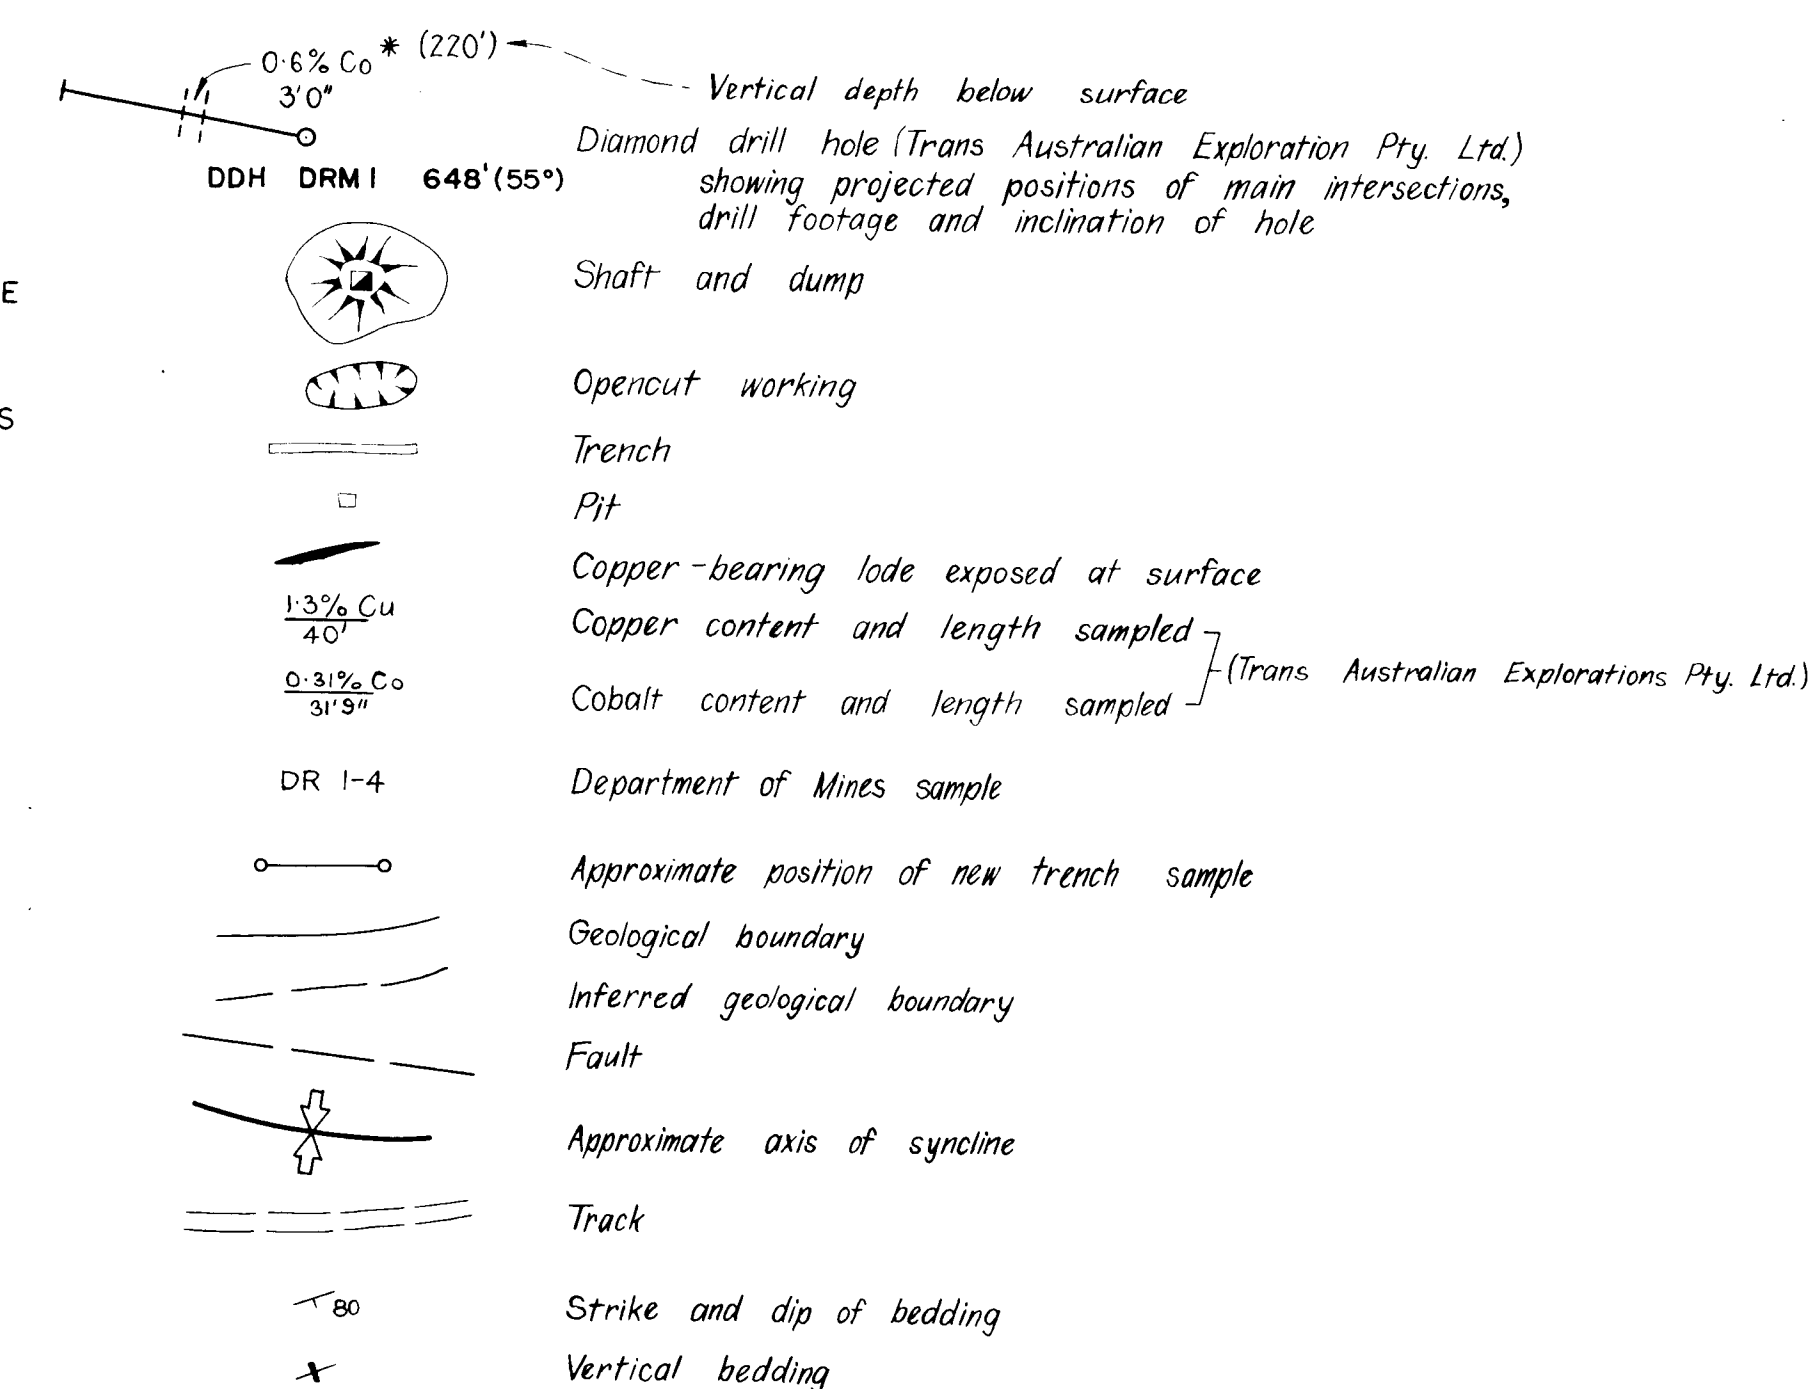 0·6% Co * (220')
3'0"
Vertical depth below surface
Diamond drill hole (Trans Australian Exploration Pty. Ltd.)
DDH DRM 1 648' (55°)
showing projected positions of main intersections,
drill footage and inclination of hole
Shaft and dump
E
Opencut working
S
Trench
Pit
Copper-bearing lode exposed at surface
1·3% Cu
40'
Copper content and length sampled
(Trans Australian Explorations Pty. Ltd.)
0·31% Co
31'9"
Cobalt content and length sampled
DR 1-4 Department of Mines sample
Approximate position of new trench sample
Geological boundary
Inferred geological boundary
Fault
Approximate axis of syncline
Track
80 Strike and dip of bedding
Vertical bedding